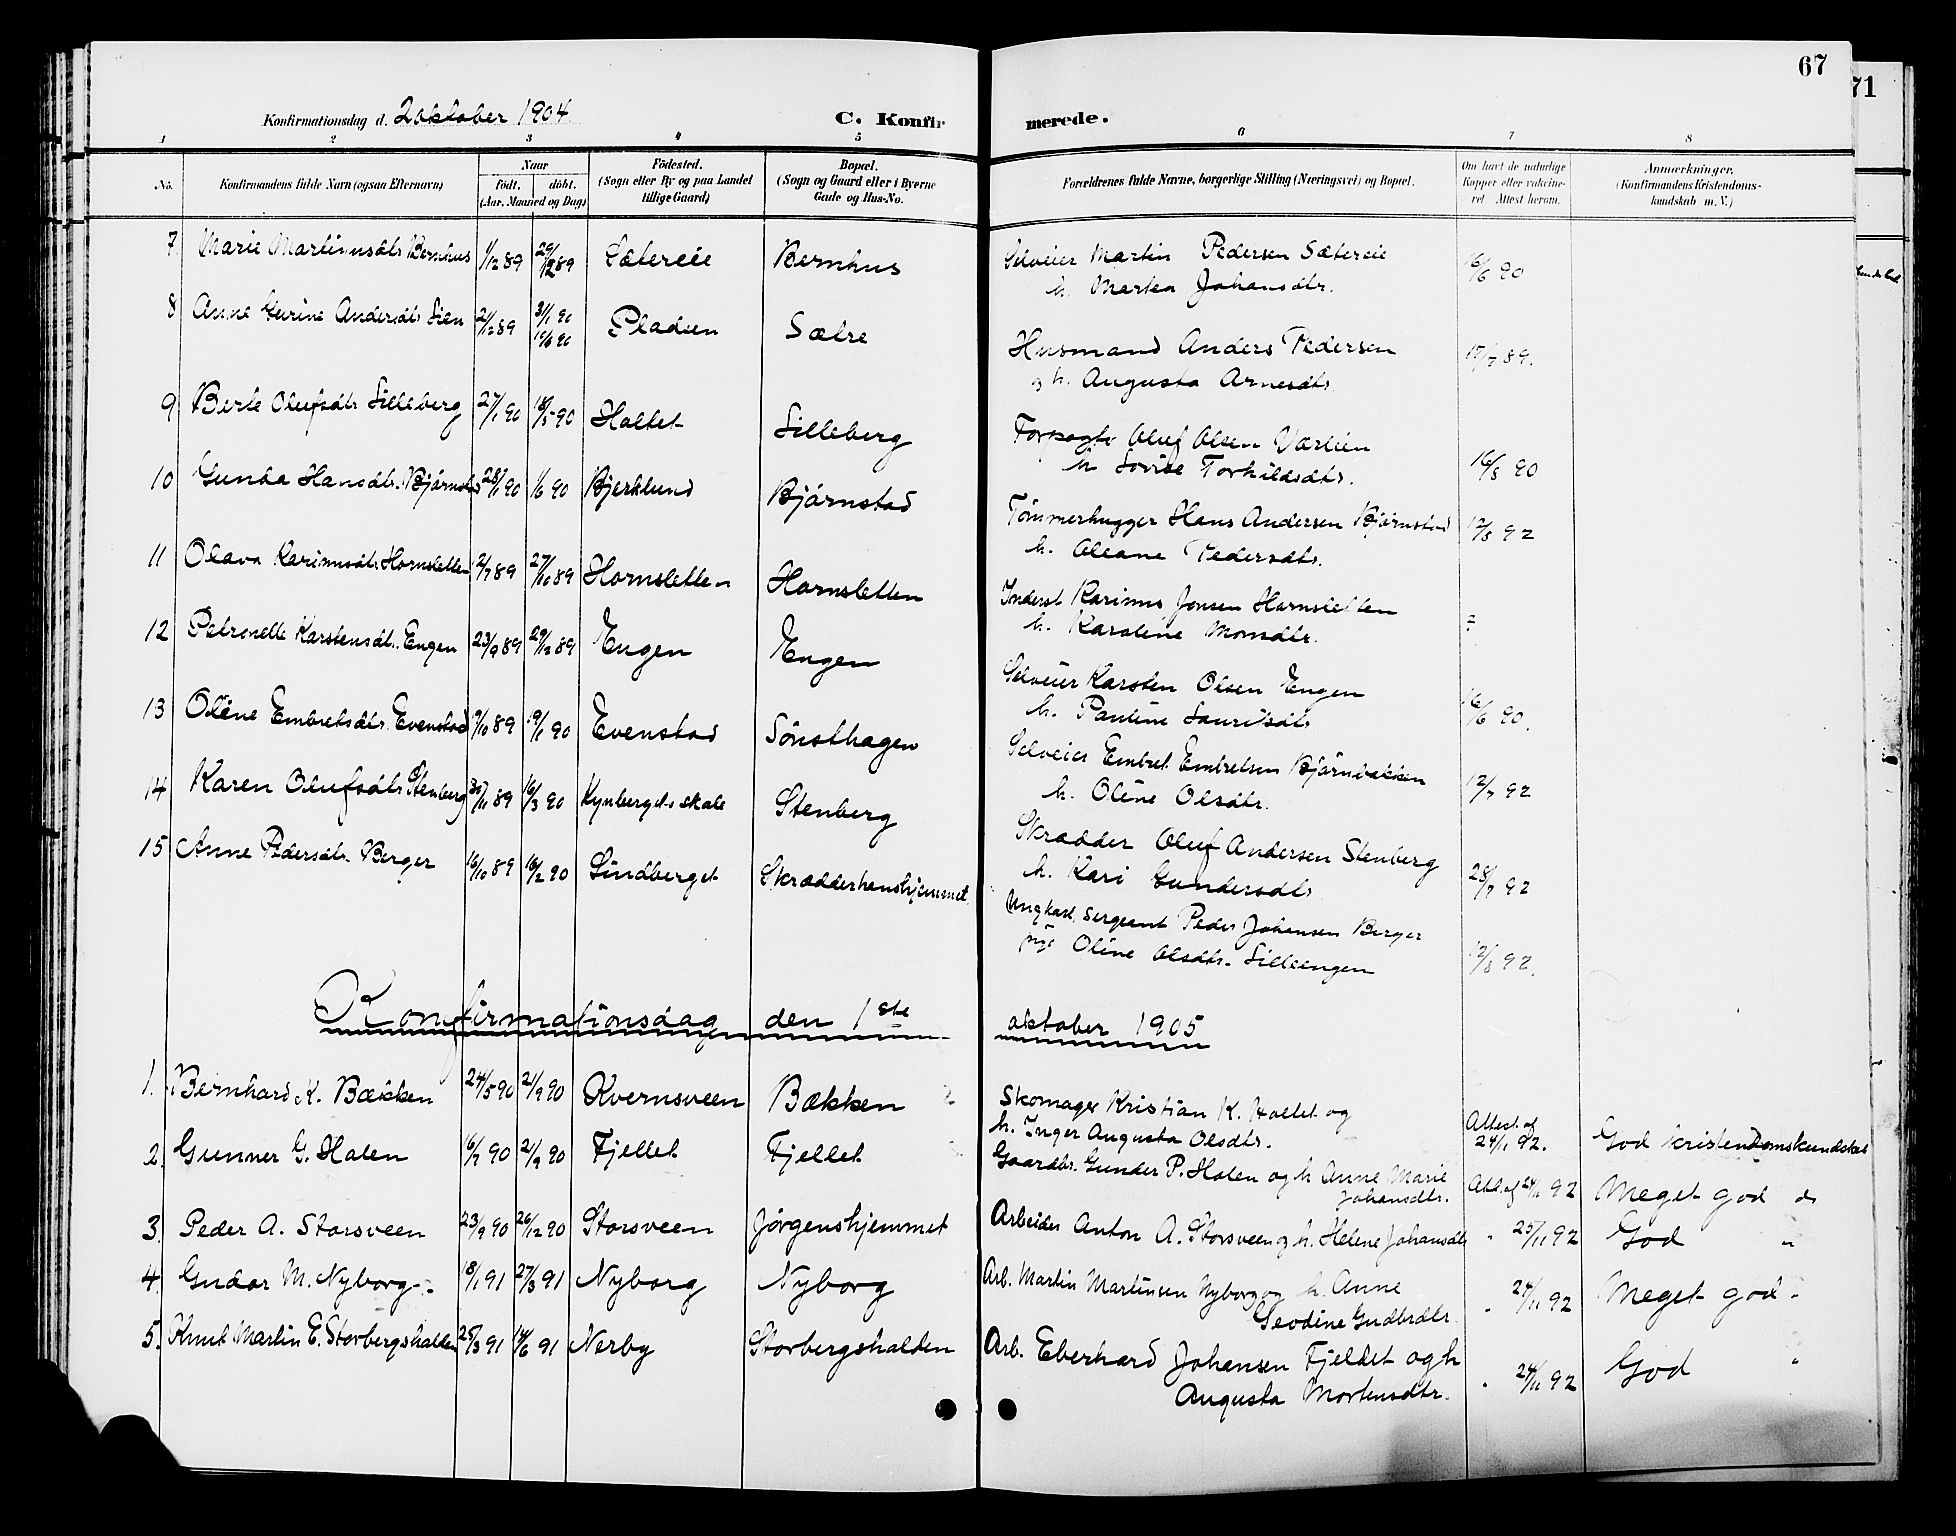 67
71
Konfirmationsdag d. 2 oktober 1904
C. Konfirmerede.
1 2 3 4 5 6 7 8
No. Konfirmandens fulde Navn (ogsaa Efternavn) Naar født. døbt. (Aar, Maaned og Dag) Fødested. (Sogn eller By og paa Landet tillige Gaard) Bopæl. (Sogn og Gaard eller i Byerne Gade og Hus-No. Forældrenes fulde Navne, borgerlige Stilling (Næringsvei) og Bopæl. Om havt de naturlige Kopper eller vakcineret. Attest herom. Anmærkninger. (Konfirmandens Kristendomskundskab m. V.)
7 Marie Martinusdtr Bernhus 1/12 89 29/12 89 Sætereie Bernhus Selveier Martin Pedersen Sætereie 16/6 90
h. Martea Johansdtr.
8 Anne Gurine Andersdtr Lien 21/12 89 31/1 90 Pladsen Sætre Husmand Anders Pedersen 17/7 89.
19/6 90 og h. Augusta Arnesdtr
9 Berte Olufsdtr Lilleberg 27/1 90 18/5 90 Holtet Lilleberg Forpagtr Oluf Olsen Værlien 16/8 90
h Lovise Torkildsdtr.
10 Gunda Hansdtr. Bjørnstad 28/1 90 1/6 90 Bjerklund Bjørnstad Tømmerhugger Hans Andersen Bjørnstad 12/8 92
h. Oleane Pedersdtr.
11 Olava Karinusdtr. Hornsletten 2/7 89 27/10 89 Hornsletten Hornsletten Inderst Karinus Jonsen Hornsletten ?
h. Karoline Monsdtr.
12 Petronelle Karstensdtr. Engen 23/9 89 29/12 89 Engen Engen Selveier Karsten Olsen Engen 16/6 90.
h. Pauline Lauritsdtr
13 Oline Embretsdtr. Evenstad 9/10 89 19/1 90 Evenstad Sønsthagen Selveier Embret Embretsen Bjørnbakken 12/7 92
h. Oline Olsdtr.
14 Karen Olufsdtr Stenberg 30/11 89 16/3 90 Kynbergets skole Stenberg Skrædder Oluf Andersen Stenberg 28/7 92
h. Kari Gundersdtr
15 Anne Pedersdtr. Berger 16/10 89 16/2 90 Lindberget Skrædderhanshjemmet Ungkarl, sergeant Peder Johansen Berger 12/8 92.
pige Oline Olsdtr. Lilleengen
Konfirmationsdag den 1ste oktober 1905
1. Bernhard K. Bækken 24/5 90 21/9 90 Kvernsveen Bækken Skomager Kristian K. Holtet og Attest af 24/11 92. God kristendomskundskab
h. Inger Augusta Olsdtr.
2. Gunner G. Holen 16/7 90 21/9 90 Fjellet Fjellet Gaardbr. Gunder P. Holen og h. Anne Marie Johansdtr. Att. af 24/11 92 Meget god do
3. Peder A. Storsveen 23/9 90 26/12 90 Storsveen Jørgenshjemmet Arbeider Anton A. Storsveen og h. Helene Johansdtr " 25/11 92 God "
4. Gudar M. Nyborg 18/1 91 27/3 91 Nyborg Nyborg Arb. Martin Martinsen Nyborg og h. Anne " 24/11 92 Meget god "
Gevdine Gudbrdtr.
5. Knut Martin E. Storbergshalden 25/3 91 14/6 91 Nerby Storbergshalden Arb. Eberhard Johansen Fjeldet og h " 24/11 92 God "
Augusta Mortensdtr.